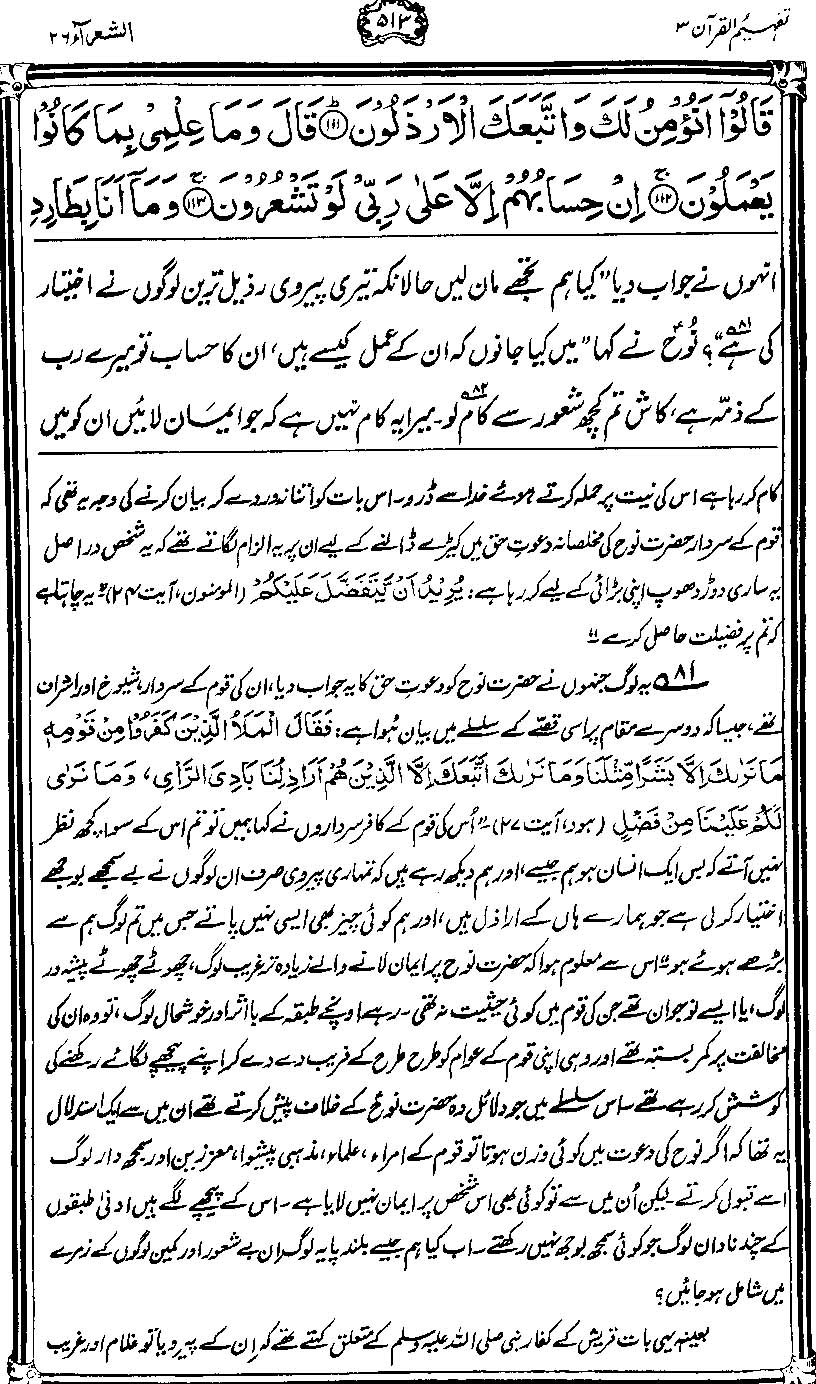 تفہیم القرآن ۳
۵۱۳
الشعرآء ۲۶
قَالُوْٓا اَنُؤْمِنُ لَكَ وَاتَّبَعَكَ الْاَرْذَلُوْنَ ﴿۱۱۱﴾ قَالَ وَمَا عِلْمِیْ بِمَا كَانُوْا
یَعْمَلُوْنَ ﴿۱۱۲﴾ اِنْ حِسَابُهُمْ اِلَّا عَلٰی رَبِّیْ لَوْ تَشْعُرُوْنَ ﴿۱۱۳﴾ وَمَآ اَنَا بِطَارِدِ
انہوں نے جواب دیا ”کیا ہم تجھے مان لیں حالانکہ تیری پیروی رذیل ترین لوگوں نے اختیار
کی ہے۸۱“؟ نوحؑ نے کہا ”میں کیا جانوں کہ ان کے عمل کیسے ہیں، ان کا حساب تو میرے رب
کے ذمّہ ہے، کاش تم کچھ شعور سے کام لو۸۲۔ میرا یہ کام نہیں ہے کہ جو ایمان لائیں ان کو میں
کام کر رہا ہے اس کی نیت پر حملہ کرتے ہوئے خدا سے ڈرو۔ اس بات کو اتنا زور دے کر بیان کرنے کی وجہ یہ تھی کہ
قوم کے سردار حضرت نوح کی مخلصانہ دعوتِ حق میں کیڑے ڈالنے کے لیے ان پر یہ الزام لگاتے تھے کہ یہ شخص دراصل
یہ ساری دوڑ دھوپ اپنی بڑائی کے لیے کر رہا ہے: یُرِیْدُ اَنْ یَّتَفَضَّلَ عَلَیْكُمْ (المومنون، آیت ۲۴) ”یہ چاہتا ہے
کہ تم پر فضیلت حاصل کرے“
۸۱ یہ لوگ جنہوں نے حضرت نوح کو دعوتِ حق کا یہ جواب دیا، ان کی قوم کے سردار، شیوخ اور اشراف
تھے، جیسا کہ دوسرے مقام پر اسی قصّے کے سلسلے میں بیان ہُوا ہے: فَقَالَ الْمَلَاُ الَّذِیْنَ كَفَرُوْا مِنْ قَوْمِهٖ
مَا نَرٰىكَ اِلَّا بَشَرًا مِّثْلَنَا وَمَا نَرٰىكَ اتَّبَعَكَ اِلَّا الَّذِیْنَ هُمْ اَرَاذِلُنَا بَادِیَ الرَّاْیِ، وَمَا نَرٰی
لَكُمْ عَلَیْنَا مِنْ فَضْلٍ (ہود، آیت ۲۷)۔ ”اُس کی قوم کے کافر سرداروں نے کہا ہمیں تو تم اس کے سوا کچھ نظر
نہیں آتے کہ بس ایک انسان ہو ہم جیسے، اور ہم دیکھ رہے ہیں کہ تمہاری پیروی صرف ان لوگوں نے بے سمجھے بوجھے
اختیار کر لی ہے جو ہمارے ہاں کے اراذل ہیں، اور ہم کوئی چیز بھی ایسی نہیں پاتے جس میں تم لوگ ہم سے
بڑھے ہوئے ہو“ اس سے معلوم ہوا کہ حضرت نوح پر ایمان لانے والے زیادہ تر غریب لوگ، چھوٹے چھوٹے پیشہ ور
لوگ، یا ایسے نوجوان تھے جن کی قوم میں کوئی حیثیت نہ تھی۔ رہے اونچے طبقہ کے با اثر اور خوشحال لوگ، تو وہ ان کی
مخالفت پر کمر بستہ تھے اور وہی اپنی قوم کے عوام کو طرح طرح کے فریب دے دے کر اپنے پیچھے لگائے رکھنے کی
کوشش کر رہے تھے۔ اس سلسلے میں جو دلائل وہ حضرت نوحؑ کے خلاف پیش کرتے تھے ان میں سے ایک استدلال
یہ تھا کہ اگر نوح کی دعوت میں کوئی وزن ہوتا تو قوم کے امراء، علماء، مذہبی پیشوا، معززین اور سمجھ دار لوگ
اسے قبول کرتے۔ لیکن اُن میں سے تو کوئی بھی اس شخص پر ایمان نہیں لایا ہے۔ اس کے پیچھے لگے ہیں ادنیٰ طبقوں
کے چند نادان لوگ جو کوئی سمجھ بوجھ نہیں رکھتے۔ اب کیا ہم جیسے بلند پایہ لوگ ان بے شعور اور کمین لوگوں کے زمرے
میں شامل ہو جائیں؟
بعینہ یہی بات قریش کے کفار نبی صلی اللہ علیہ وسلم کے متعلق کہتے تھے کہ اِن کے پیرو یا تو غلام اور غریب